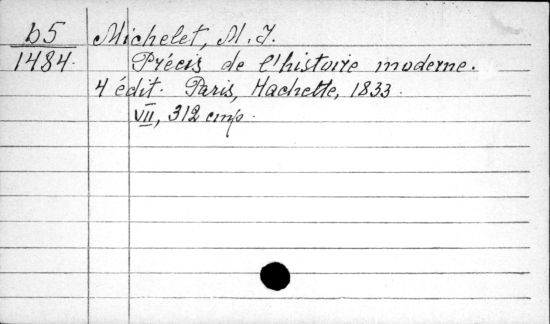 b5
1484.
Michelet, M. J.
Précis de l'histoire moderne.
4 édit. Paris, Hachette, 1833.
VII, 312 стр.